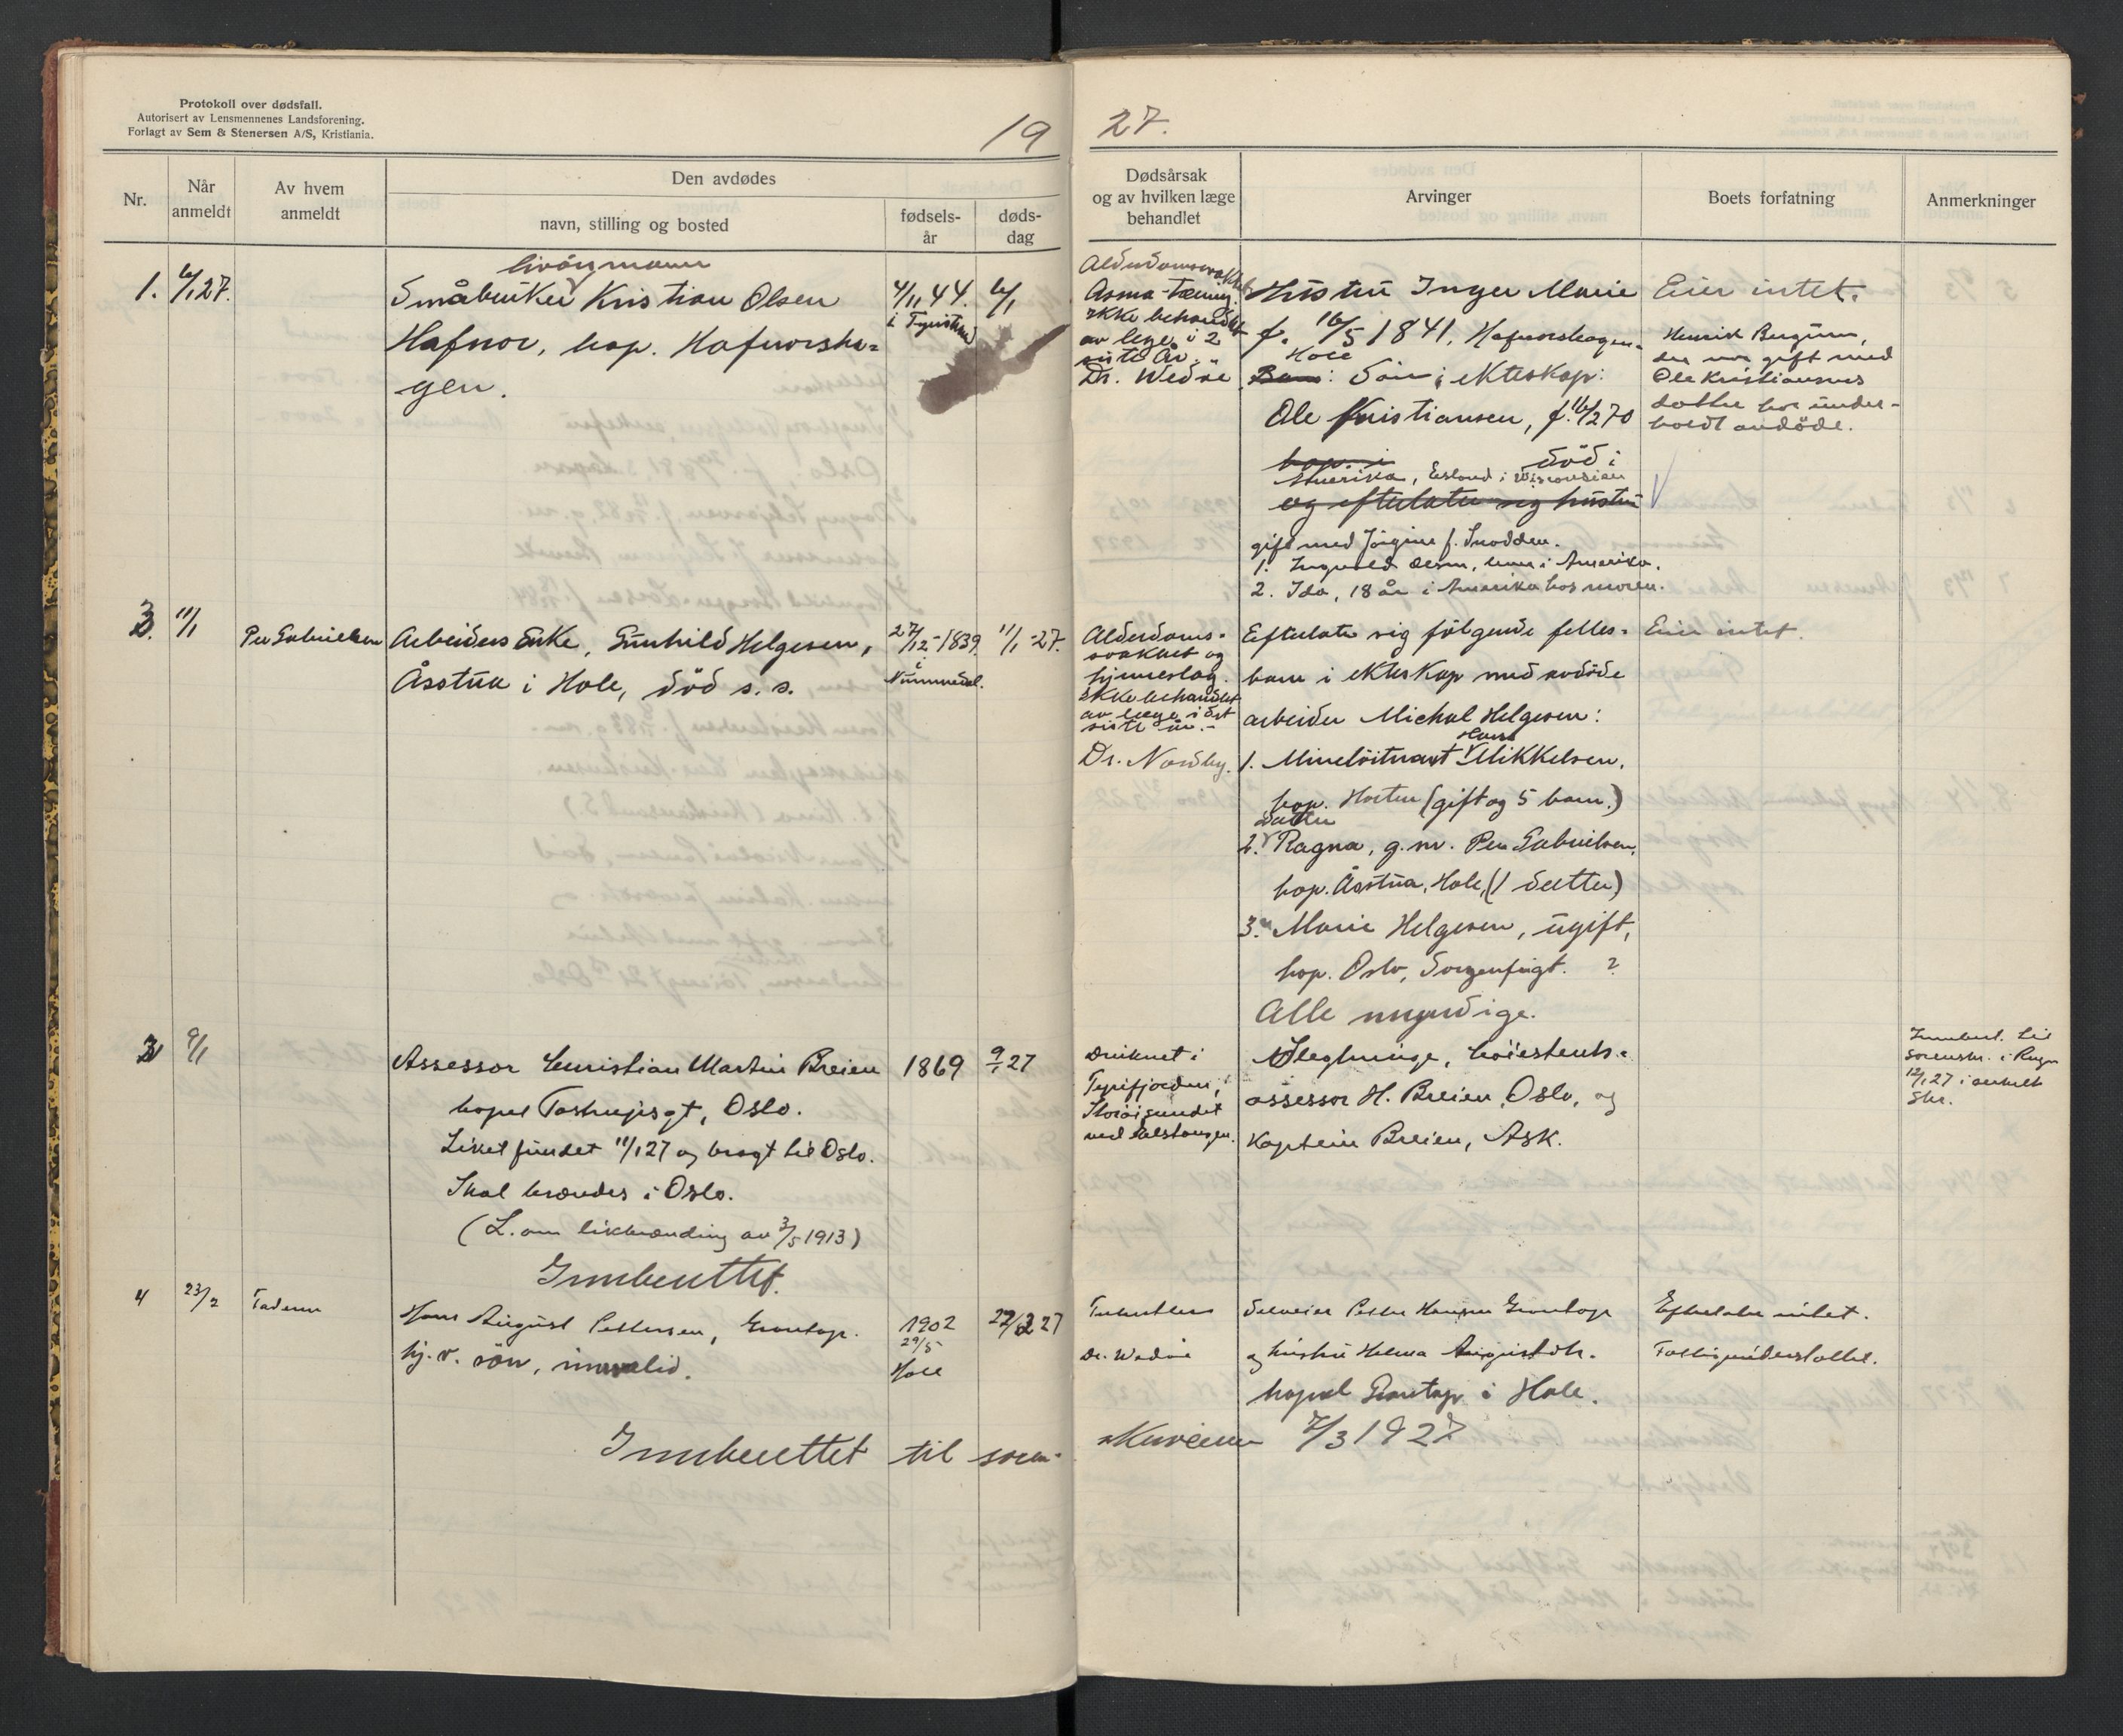 Protokoll over dødsfall.
Autorisert av Lensmennenes Landsforening.
Forlagt av Sem & Stenersen A/S, Kristiania.
19 27.
Nr.
Når anmeldt
Av hvem anmeldt
Den avdødes
navn, stilling og bosted
fødsels-år
døds-dag
Dødsårsak
og av hvilken læge
behandlet
Arvinger
Boets forfatning
Anmerkninger
1. 6/1 27.
livörsmann
Småbruker Kristian Olsen
Hafnor, bop. Hafnorsko-
gen.
4/11 44.
i Tyristrand
6/1
Alderdomssvakhet
Asma-tæring.
ikke behandlet
av lege i 2
siste år.
Dr. Wedøe
Hustru Inger Marie
f. 16/5 1841, Hafnorskogen.
Hole
Barn: Sön i ekteskap:
Ole Kristiansen, f. 16/2 70
bop. i död i
Amerika, i Wisconsian
og efterlater sig hustru
gift med Jörgine f. Snodden.
1. Ingvald Olsen, i Amerika.
2. Ida, 18 år i Amerika hos moren.
Eier intet.
Henrik Bergum,
der var gift med
Ole Kristiansens
datter har under-
holdt avdöde.
3. 11/1
Per Gabrielsen
Arbeiders Enke, Gunhild Helgesen,
Åsstua i Hole, död s. s.
27/12-1839.
i
Nummedal.
11/1-27.
Alderdoms-
svakhet og
hjerneslag.
ikke behandlet
av læge i det
siste år.-
Dr. Nordby.
Efterlater sig fölgende felles-
barn i ekteskap med avdöde
arbeider Michal Helgesen:
Hans
1. Minelöitnant Mikkelsen,
bop. Horten (gift og 5 barn.)
Datter
2. Ragna, g. m. Per Gabrielsen,
bop. Åsstua, Hole, (1 datter)
3. Marie Helgesen, ugift,
bop. Oslo, Sorgenfrigt. ?
Alle myndige.
Eier intet.
2 9/1
Assessor Christian Martin Breien
bopel Tostrupsgt, Oslo.
Liket fundet 11/1 27 og bragt til Oslo.
Skal brændes i Oslo.
(L. om likbrænding av 3/5 1913)
Innberettet.
1869
9/1 27
Druknet i
Tyrifjorden,
Storöisundet
ved
Slegtninge, höiesterets-
assessor H. Breien, Oslo, og
Kaptein Breien, Ask.
Innberet. til
sorenskr. i Ringer
12/1 27 i enkelt
Skr.
4 23/2
Faderen
Hans August Pettersen, Grøntop.
hj. v. sön, invalid.
1902
29/5
Hole
22/2 27
Tuberkulose
Dr. Wedöe
Selveier Petter Hansen Grøntop
og hustru Helma Augustdtr.
bopel Grøntop i Hole.
Efterlater intet.
Fattigunderstöttet.
Innberettet til soren-
skriveren 7/3 1927